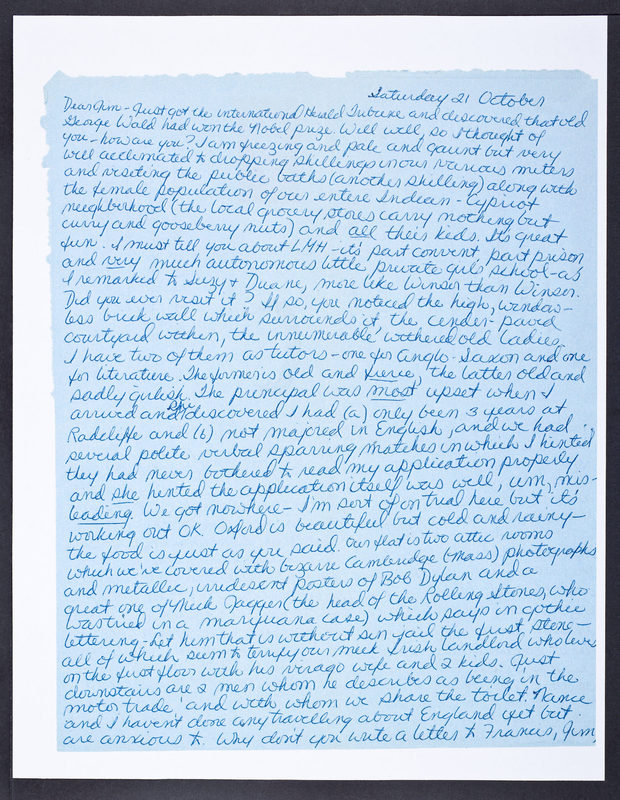 Saturday 21 October
Dear Jim - Just got the international Herald Tribune and discovered that old
George Wald had won the Nobel prize. Well well, so I thought of
you - how are you? I am freezing and pale and gaunt but very
well acclimated to dropping shillings in our various meters
and visiting the public baths (another shilling) along with
the female population of our entire Indian - Cypriot
neighborhood (the local grocery stores carry nothing but
curry and gooseberry nuts) and all their kids. It's great
fun. I must tell you about LMH - it's part convent, part prison
and very much autonomous little private girls' school - as
I remarked to Suzy + Duane, more like Winsor than Winsor.
Did you ever visit it? If so, you noticed the high, window-
less brick wall which surrounds it, the cinder-paved
courtyard within, the innumerable withered old ladies.
I have two of them as tutors - one for Anglo-Saxon and one
for literature. The former is old and fierce, the latter old and
sadly girlish. The principal was most upset when I
arrived and she discovered I had (a) only been 3 years at
Radcliffe and (b) not majored in English, and we had
several polite verbal sparring matches in which I hinted
they had never bothered to read my application properly
and she hinted the application itself was well, um, mis-
leading. We got nowhere - I'm sort of on trial here but it's
working out OK. Oxford is beautiful but cold and rainy -
the food is just as you said. Our flat is two attic rooms
which we've covered with bizarre Cambridge (Mass) photographs
and metallic, irridescent posters of Bob Dylan and a
great one of Mick Jagger (the head of the Rolling Stones, who
was tried in a marijuana case) which says in gothic
lettering - Let him that is without sin jail the first stone -
all of which seem to terrify our meek Irish landlord who lives
on the first floor with his virago wife and 2 kids. Just
downstairs are 2 men whom he describes as being 'in the
motor trade' and with whom we share the toilet. Nance
and I haven't done any travelling about England yet but
are anxious to. Why don't you write a letter to Francis, Jim,